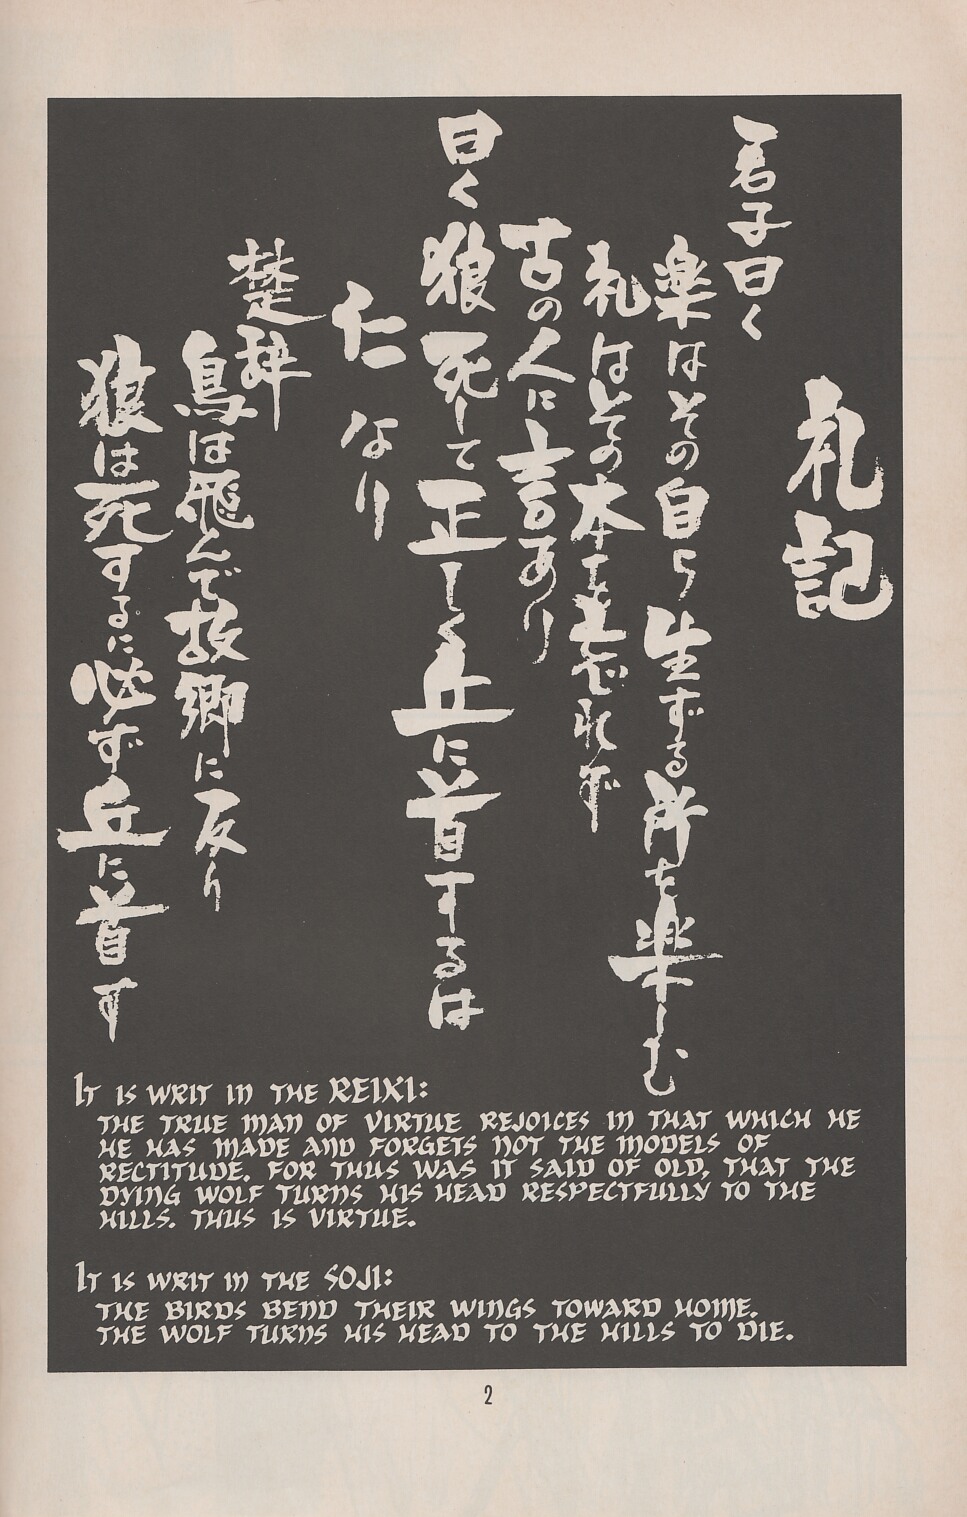 礼記
君子曰く
楽はその自ら生ずる所を楽しむ
礼はその本を忘れず
古の人に言あり
曰く狼死して正しく丘に首するは
仁なり
楚辞
鳥は飛んで故郷に反り
狼は死するに必ず丘に首す
IT IS WRIT IN THE REIKI:
THE TRUE MAN OF VIRTUE REJOICES IN THAT WHICH HE
HE HAS MADE AND FORGETS NOT THE MODELS OF
RECTITUDE. FOR THUS WAS IT SAID OF OLD, THAT THE
DYING WOLF TURNS HIS HEAD RESPECTFULLY TO THE
HILLS. THUS IS VIRTUE.
IT IS WRIT IN THE SOJI:
THE BIRDS BEND THEIR WINGS TOWARD HOME.
THE WOLF TURNS HIS HEAD TO THE HILLS TO DIE.
2